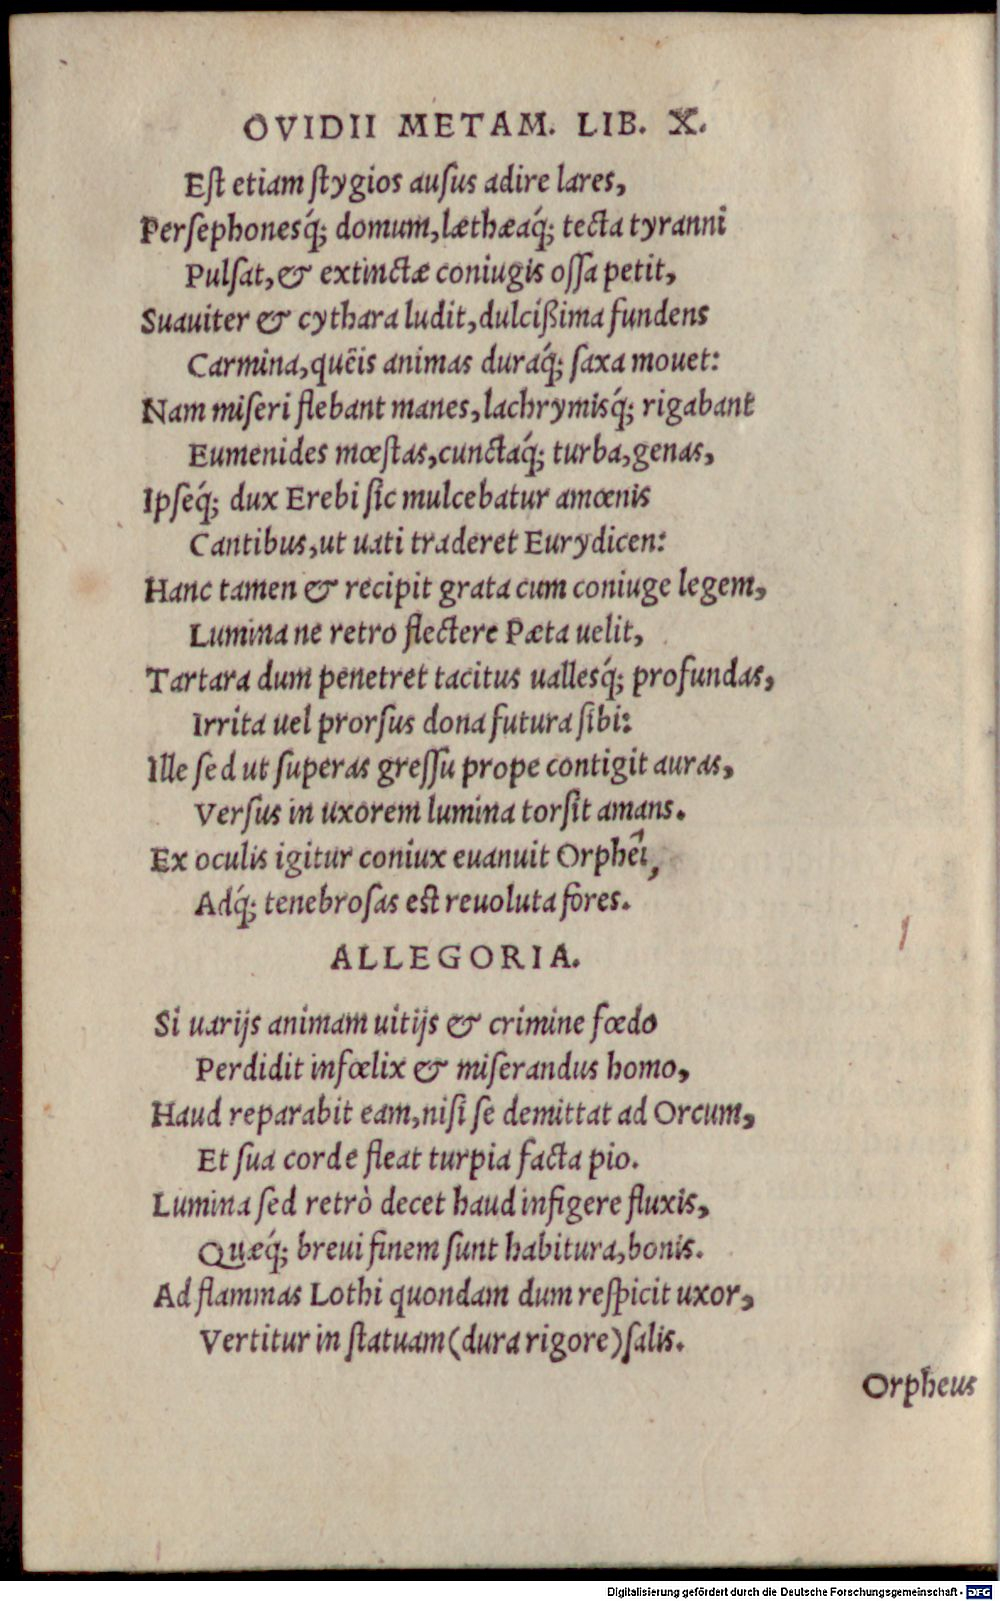 OVIDII METAM. LIB. X.
Eſt etiam ſtygios auſus adire lares,
Perſephonesq́; domum, læthæaq́; tecta tyranni
Pulſat, & extinctæ coniugis oſſa petit,
Suauiter & cythara ludit, dulcißima fundens
Carmina, quêis animas duraq́; ſaxa mouet:
Nam miſeri flebant manes, lachrymisq́; rigabant
Eumenides mœſtas, cunctaq́; turba, genas,
Ipſeq́; dux Erebi ſic mulcebatur amœnis
Cantibus, ut uati traderet Eurydicen:
Hanc tamen & recipit grata cum coniuge legem,
Lumina ne retro flectere Pæta uelit,
Tartara dum penetret tacitus uallesq́; profundas,
Irrita uel prorſus dona futura ſibi:
Ille ſed ut ſuperas greſſu prope contigit auras,
Verſus in uxorem lumina torſit amans.
Ex oculis igitur coniux euanuit Orphei,
Adq́; tenebroſas eſt reuoluta fores.
ALLEGORIA.
Si uarijs animam uitijs & crimine fœdo
Perdidit infœlix & miſerandus homo,
Haud reparabit eam, niſi ſe demittat ad Orcum,
Et ſua corde fleat turpia facta pio.
Lumina ſed retrò decet haud infigere fluxis,
Quæq́; breui finem ſunt habitura, bonis.
Ad flammas Lothi quondam dum reſpicit uxor,
Vertitur in ſtatuam (dura rigore) ſalis.
Orpheus
Digitalisierung gefördert durch die Deutsche Forschungsgemeinschaft - DFG